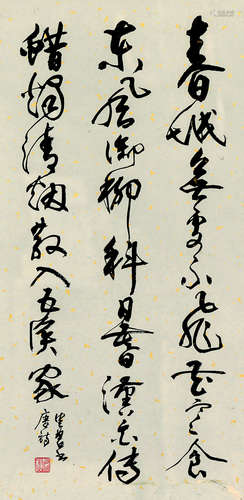 春城無處不飛花寒食
東風御柳斜日暮漢宮傳
蜡燭清烟散入五侯家
唐詩